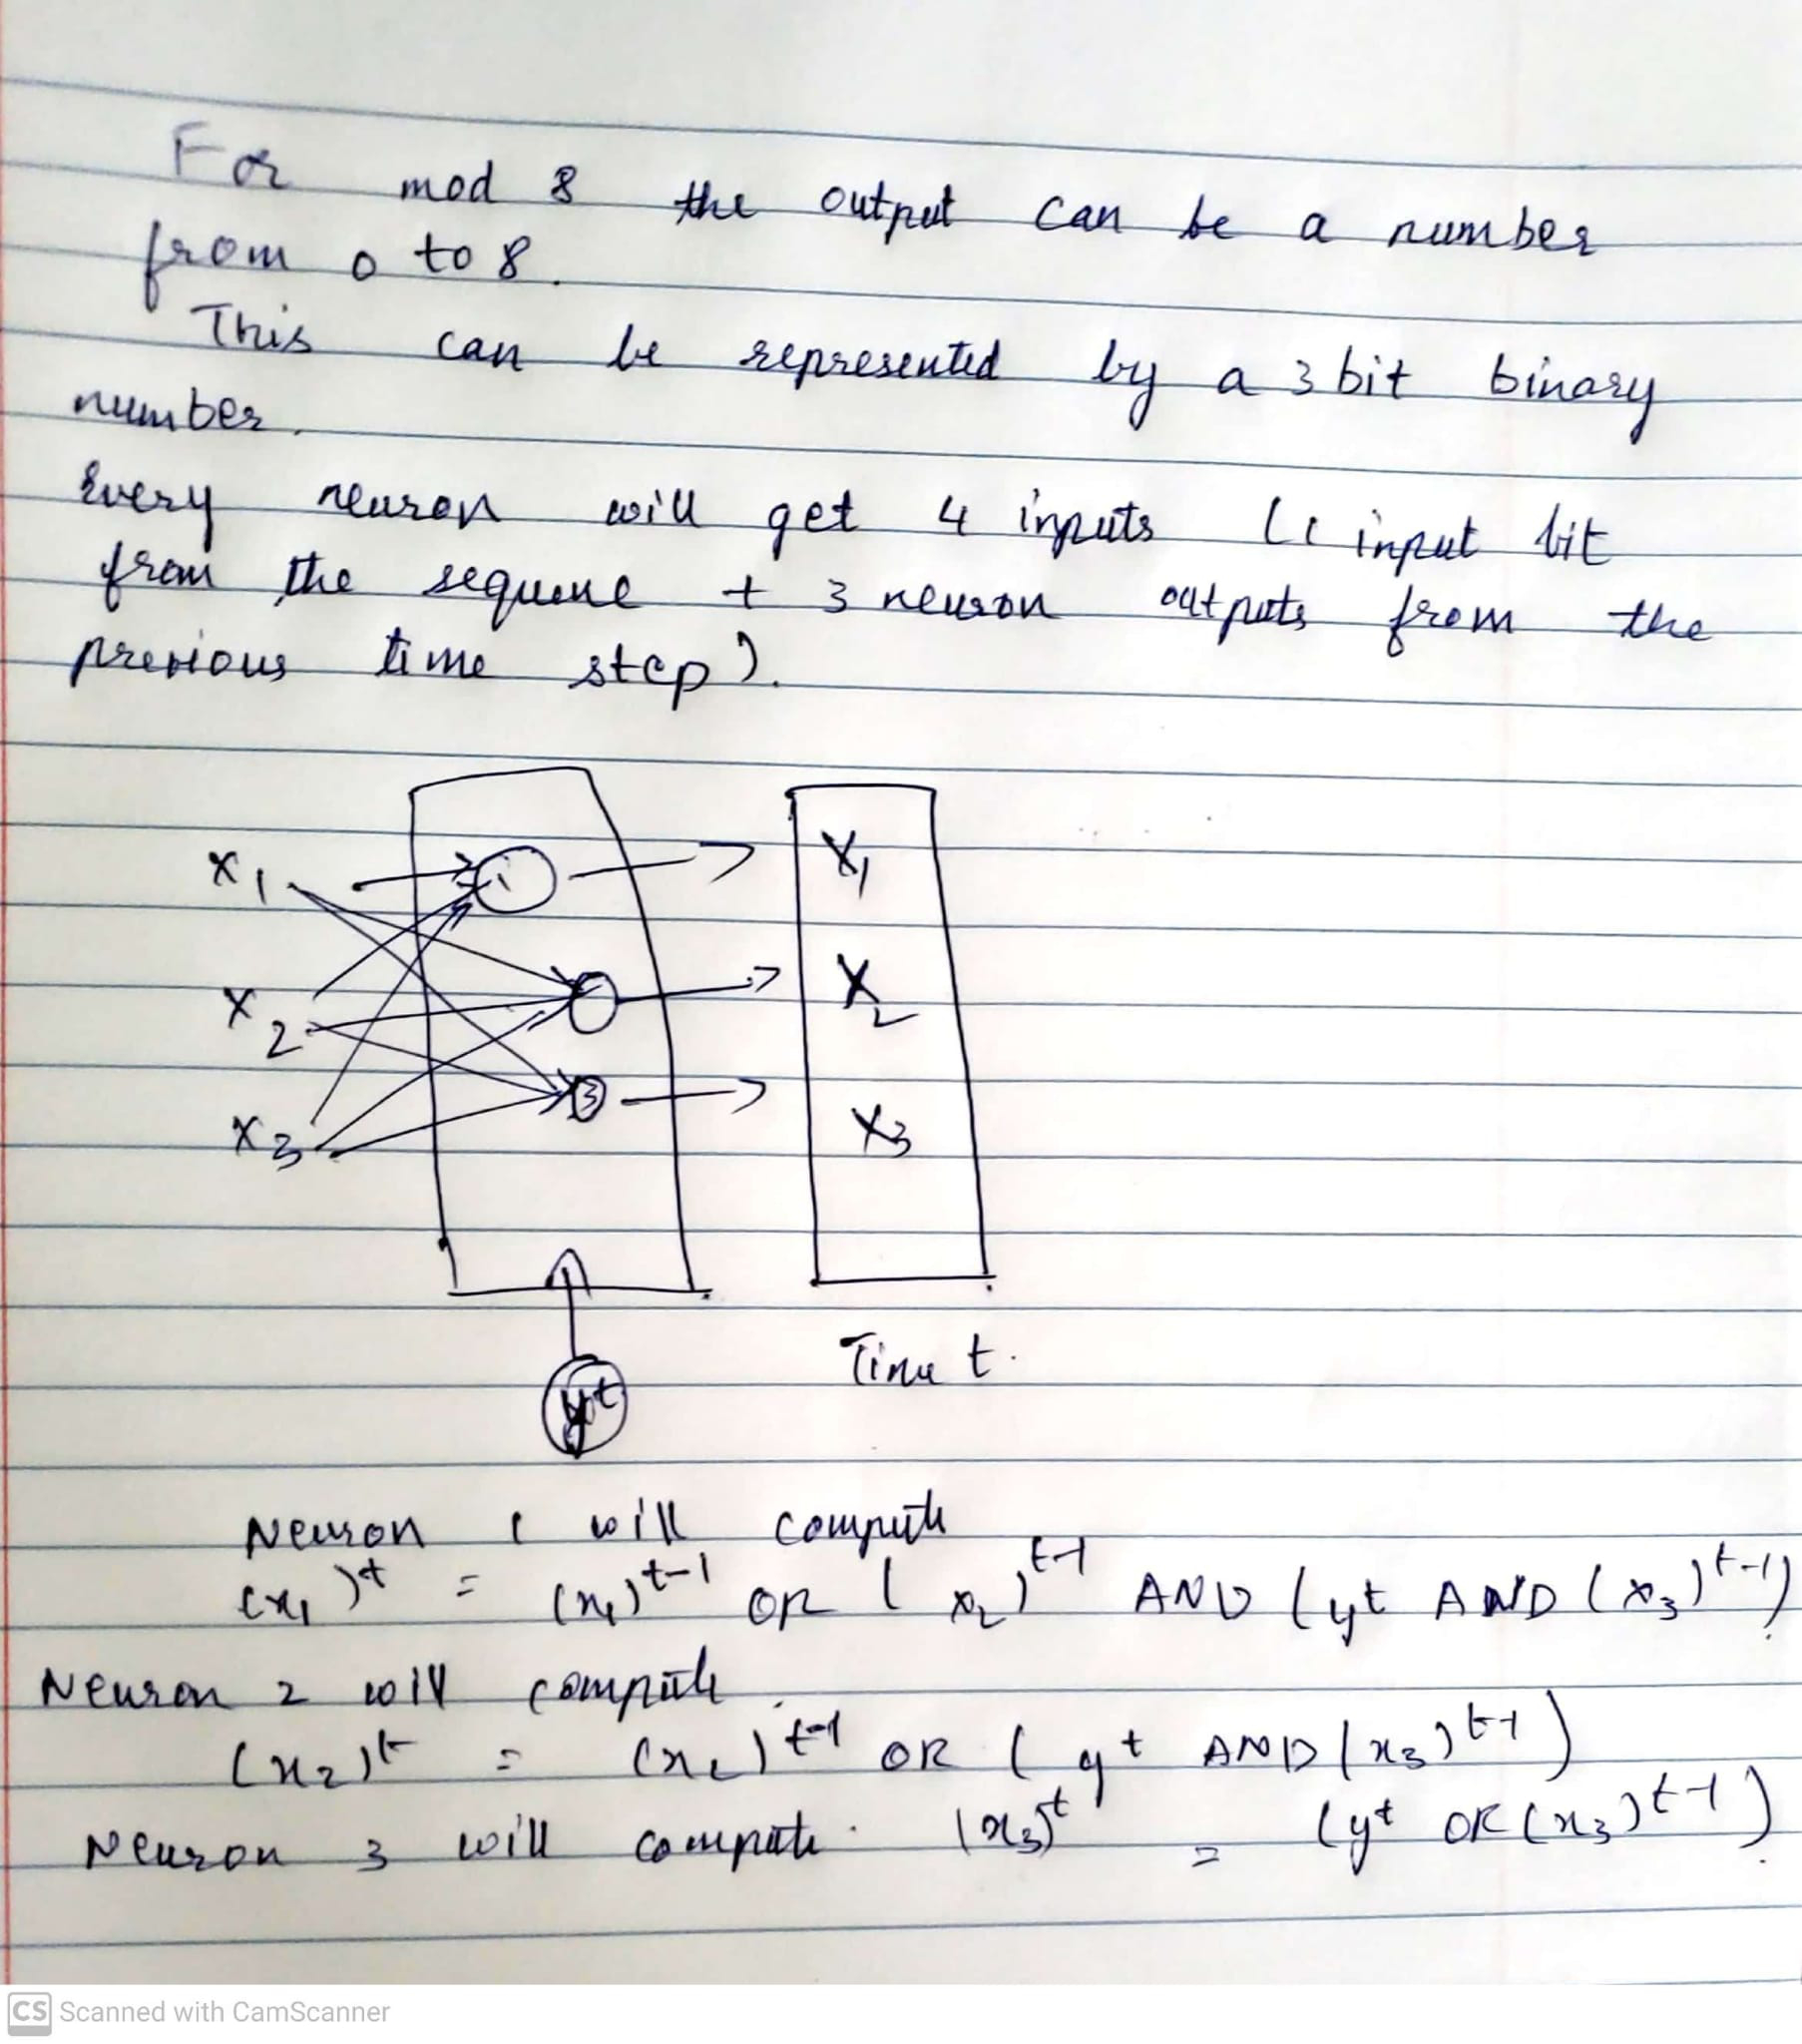 For mod 8 the output can be a number
from 0 to 8.
This can be represented by a 3 bit binary
number.
Every neuron will get 4 inputs (1 input bit
from the sequence + 3 neuron outputs from the
previous time step).
x1
x2
x3
1
3
X1
X2
X3
yt
Time t.
Neuron 1 will compute
(x1)^t = (x1)^t-1 OR (x2)^t-1 AND (yt AND (x3)^t-1)
Neuron 2 will compute
(x2)^t = (x2)^t-1 OR (y^t AND (x3)^t-1)
Neuron 3 will compute. (x3)^t = (y^t OR (x3)^t-1).
CS Scanned with CamScanner